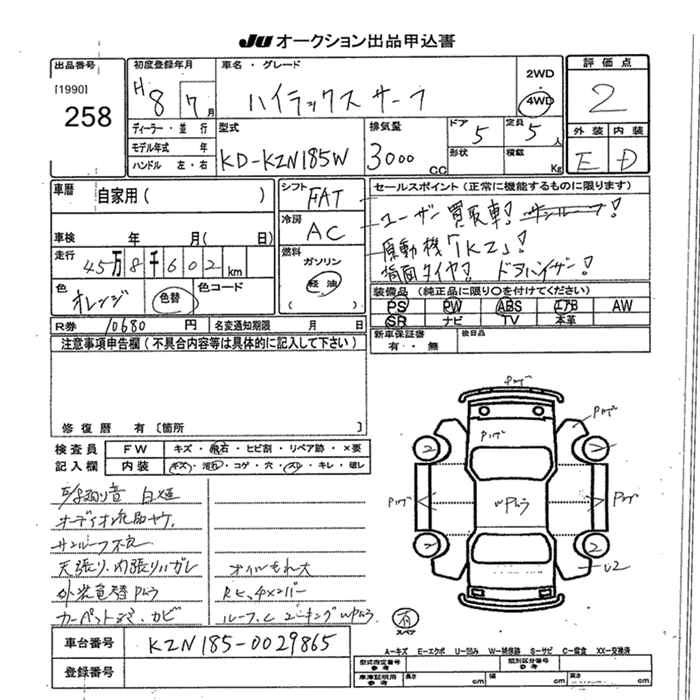 JU オークション出品申込書
出品番号
[1990]
258
初度登録年月
H8 7月
車名・グレード
ハイラックスサーフ
2WD
4WD
評価点
2
外装 内装
E D
ディーラー・並行
モデル年式 年
ハンドル 左・右
型式
KD-KZN185W
排気量
3000 CC
ドア 5
形状
定員 5人
積載 Kg
車歴
自家用( )
シフト
FAT
車検 年 月( 日)
冷房
AC
走行
45万8千602km
燃料
ガソリン
軽油
色
オレンジ
色替
色コード
R券 10680円
名変通知期限 月 日
セールスポイント(正常に機能するものに限ります)
ユーザー買取車! サンルーフ!
原動機「1KZ」!
装備品(純正品に限り○を付けてください)
PS PW ABS エアB AW
SR ナビ TV 本革
新車保証書
有・無
後日品
注意事項申告欄(不具合内容等は具体的に記入して下さい)
修復歴 有〔箇所 〕
検査員
記入欄
FW キズ・飛石・ヒビ割・リペア跡・×要
内装 キズ・汚れ・コゲ・穴・スレ・キレ・破レ
サンルーフ不良
天張り、内張りハガレ
オイルもれ大
外装色替Pムラ
カーペットゴミ、カビ
車台番号
KZN185-0029865
登録番号
Pハゲ
Pハゲ
Pハゲ
Pハゲ
Pハゲ
WPムラ
2
2
2
2
U2
有
スペア
A-キズ E-エクボ U-凹み W-補修跡 S-サビ C-腐食 XX-交換済
型式指定番号
参考
類別区分番号
参考
車庫証明用
参考
長さ cm
幅 cm
高さ cm